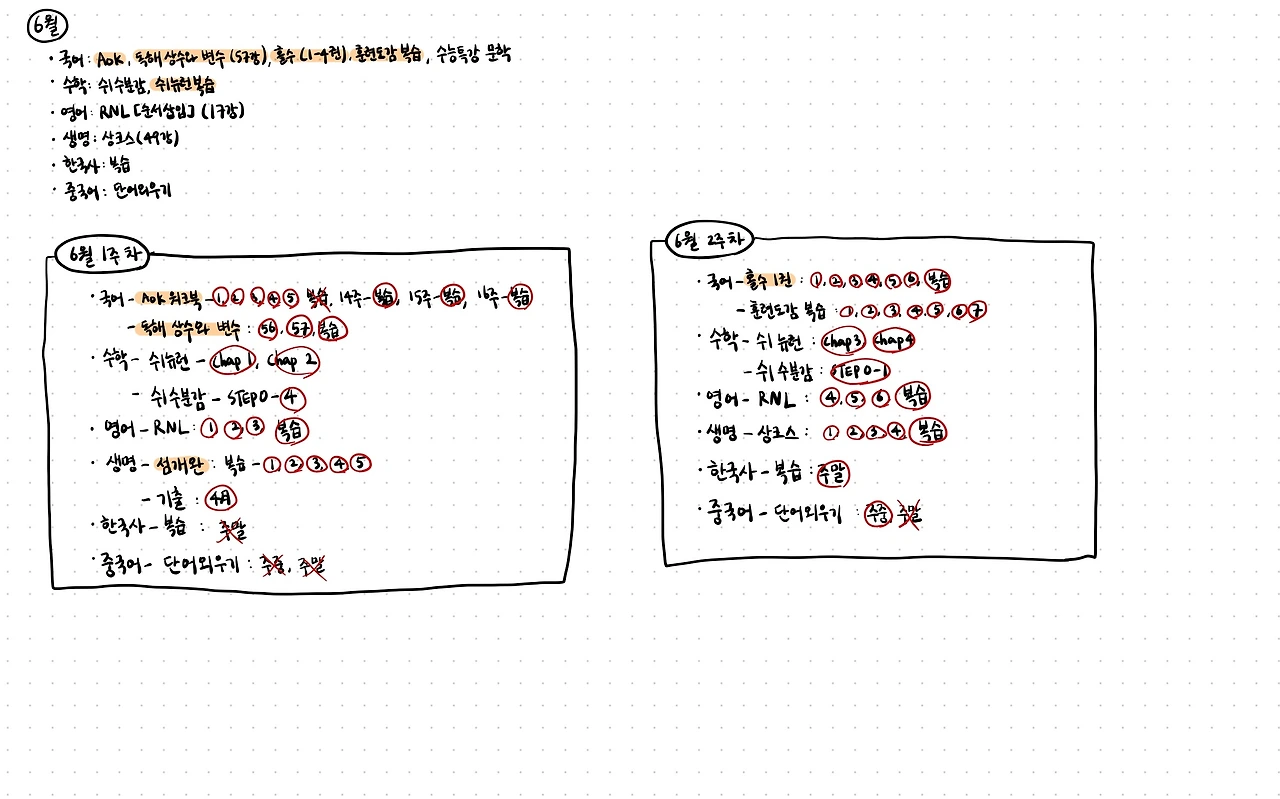 6월
· 국어 : AOK, 독해 상수와 변수 (57강), 홀수 (1-4권), 훈련도감 복습, 수능특강 문학
· 수학 : 쉬수분감, 쉬뉴런 복습
· 영어 : RNL [순서삽입] (17강)
· 생명 : 상크스(49강)
· 한국사 : 복습
· 중국어 : 단어외우기
6월 1주차
· 국어 - AOK 워크북 - ①, ②, ③, ④, ⑤ 복습, 14주-복습, 15주-복습, 16주-복습
- 독해 상수와 변수 : 56, 57, 복습
· 수학 - 쉬뉴런 - Chap 1, Chap 2
- 쉬수분감 - STEP0-4
· 영어 - RNL : ① ② ③ 복습
· 생명 - 섬개완 : 복습 - ① ② ③ ④ ⑤
- 기출 : 4月
· 한국사 - 복습 : 주말
· 중국어 - 단어외우기 : 주중, 주말
6월 2주차
· 국어 - 홀수 1권 : ①, ②, ③, ④, ⑤, ⑥, 복습
- 훈련도감 복습 : ①, ②, ③, ④, ⑤, ⑥ ⑦
· 수학 - 쉬뉴런 : Chap3 Chap4
- 쉬수분감 : STEP0-1
· 영어 - RNL : ④, ⑤, ⑥ 복습
· 생명 - 상크스 : ① ② ③ ④, 복습
· 한국사 - 복습 : 주말
· 중국어 - 단어외우기 : 주중, 주말